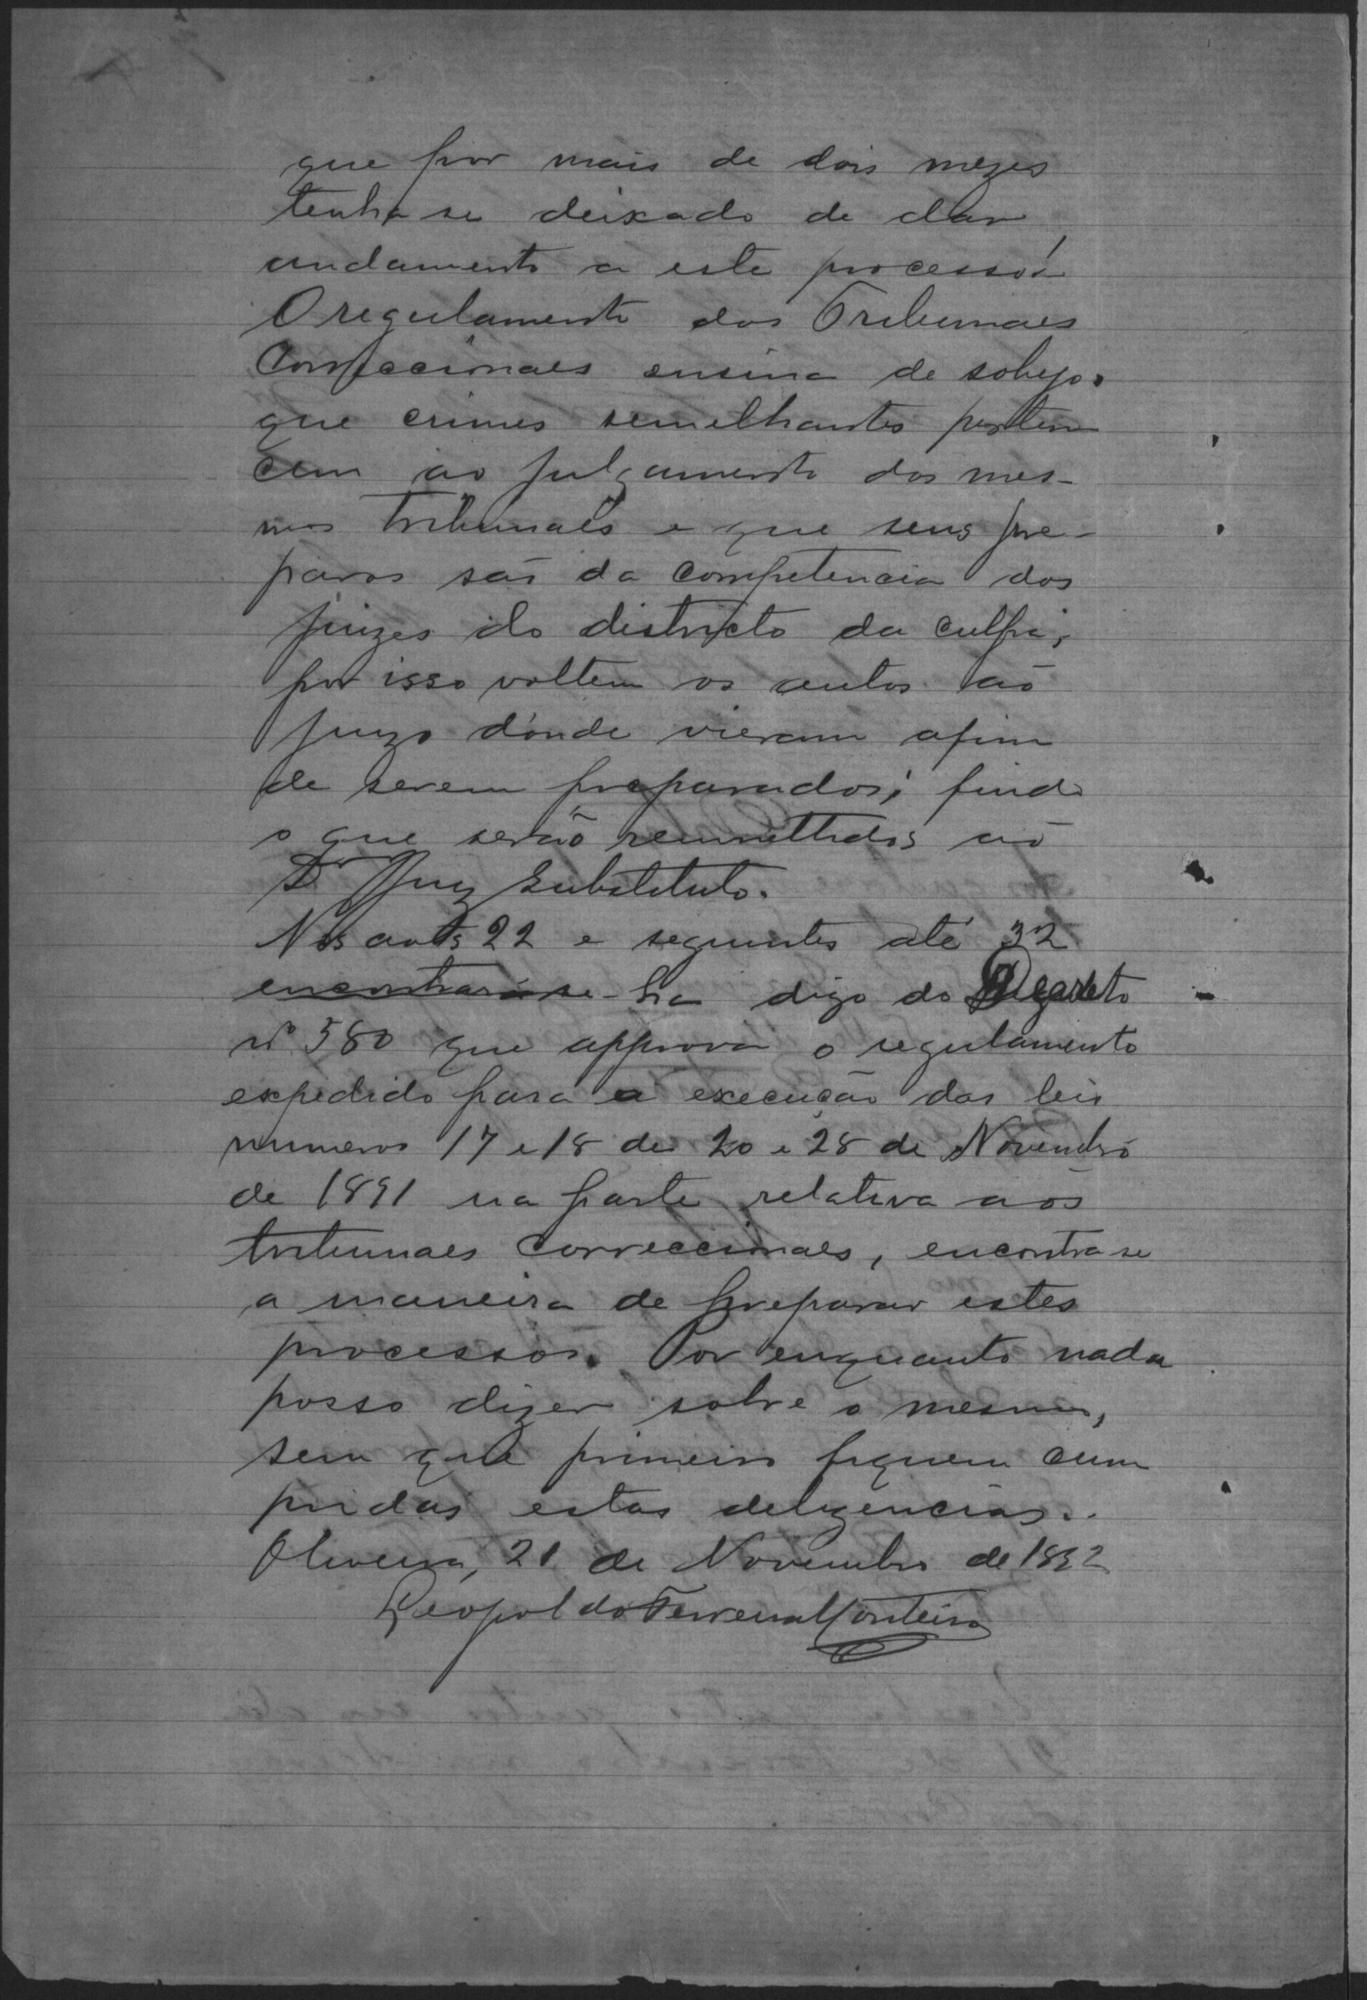 que por mais de dois mezes
tenha se deixado de dar
andamento a este processo!
O regulamento dos Tribunaes
Correccionaes ensina de sobejo
que crimes semelhantes perten
cem ao julgamento dos mes-
mos tribunaes e que seus pre-
paros são da competencia dos
juizes do districto da culpa,
por isso voltem os autos ao
juizo d'onde vieram afim
de serem preparados; findo
o que serão remmettidos ao
Dr Juiz Substituto.
Nos arts 22 e seguintes até 32
encontrará-se digo do Decreto
nº 580 que approva o regulamento
expedido para a execução das leis
numeros 17 e 18 de 20 e 28 de Novembro
de 1891 na parte relativa aos
tribunaes correccionaes, encontra se
a maneira de preparar estes
processos. Por enquanto nada
posso dizer sobre o mesmo,
sem que primeiro fiquem cum
pridas estas deligencias.
Oliveira, 21 de Novembro de 1892
Leopoldo Ferreira Monteiro